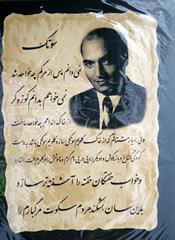 سوتک
نمی دانم پس از مرگم چه خواهد شد
نمی خواهم بدانم کوزه گر
از خاک اندامم چه خواهد ساخت
ولی بسیار مشتاقم که از خاک گلویم سوتکی سازد گلویم سوتکی باشد به دست
کودکی گستاخ و بازیگوش و او یکریز و پی در پی دم گرم
و خواب خفتگان خفته را آشفته سازد
بدین سان بشکند هر دم سکوت مرگبارم را